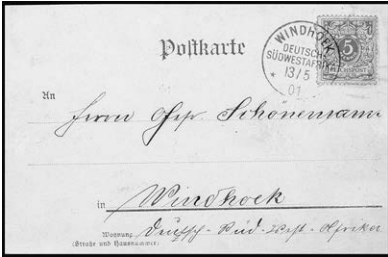 Postkarte
WINDHOEK
DEUTSCH-
SÜDWESTAFRIKA
13/5
01
5
An
Herrn Schönemann
in Windhoek
Wohnung
(Straße und Hausnummer)
Deutsch-Süd-West-Afrika